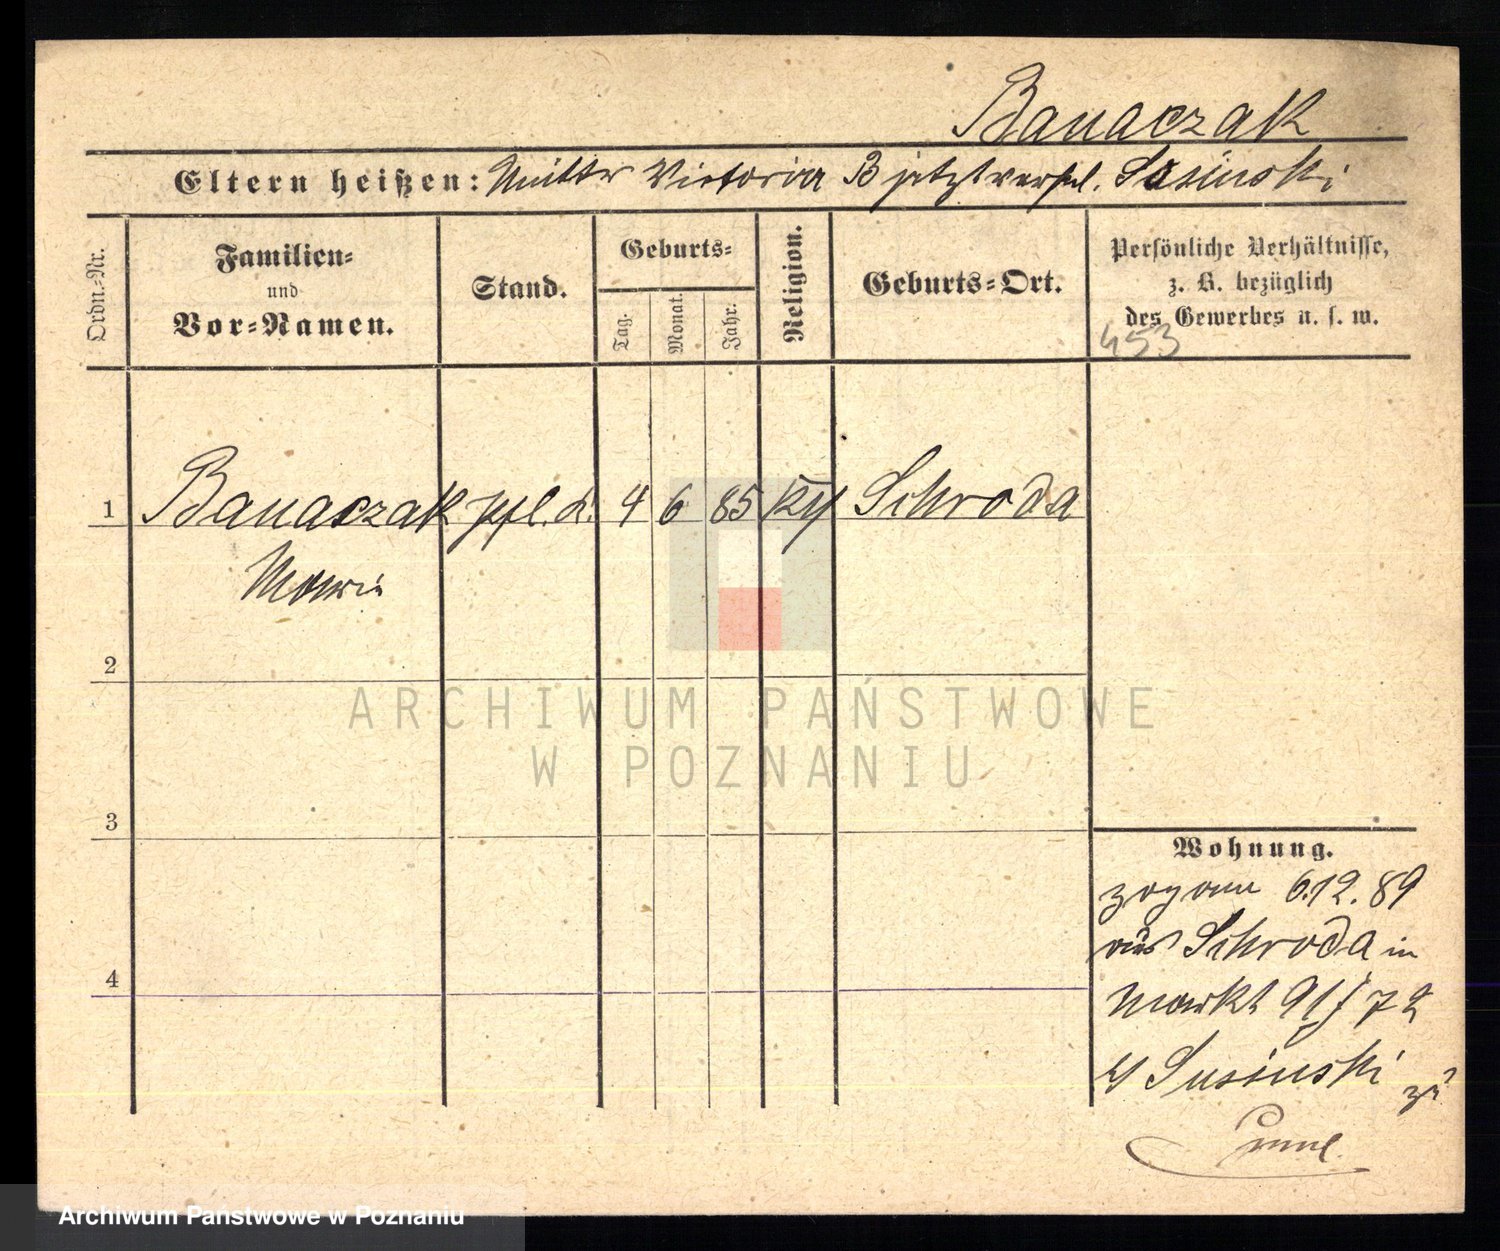 Banaczak
Eltern heißen: Mutter Victoria B jetzt verehel. Susinski
Ordn.-Nr.
Familien-
und
Vor-Namen.
Stand.
Geburts-
Tag.
Monat.
Jahr.
Religion.
Geburts-Ort.
Persönliche Verhältnisse,
z. B. bezüglich
des Gewerbes u. s. w.
453
1 Banaczak 4 6 85 Schroda
Maria
2
3
4
Wohnung.
zogen 6.12.89
aus Schroda in
Markt 91 / 72
Susinski zu
ARCHIWUM PAŃSTWOWE
W POZNANIU
Archiwum Państwowe w Poznaniu